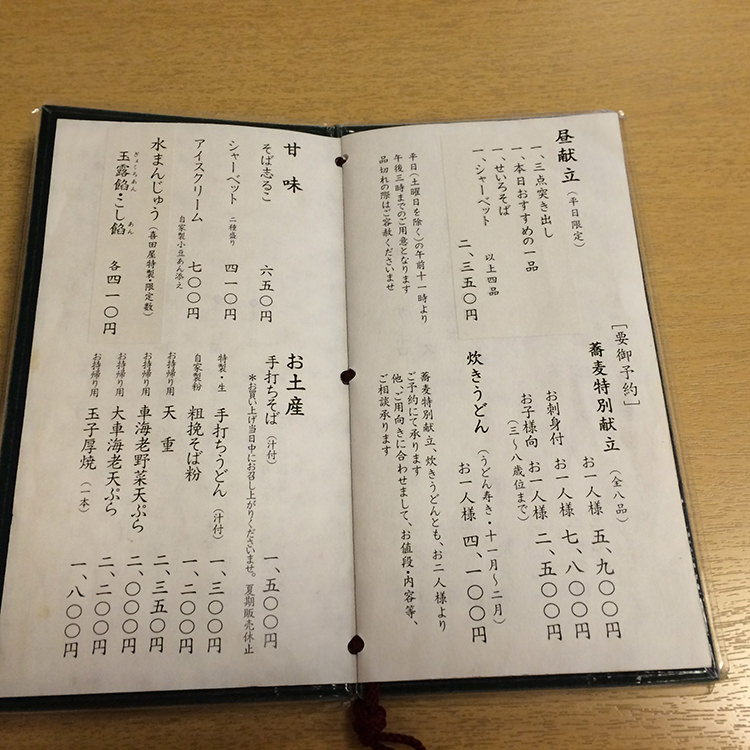 昼献立（平日限定）
一、三点突き出し
一、本日おすすめの一品
一、せいろそば
一、シャーベット
以上四品
二、三五〇円
平日（土曜日を除く）の午前十一時より
午後三時までのご用意となります
品切れの際はご容赦くださいませ
［要御予約］
蕎麦特別献立（全八品）
お一人様 五、九〇〇円
お刺身付 お一人様 七、八〇〇円
お子様向 お一人様 二、五〇〇円
（三～八歳位まで）
炊きうどん（うどん寿き・十一月～二月）
お一人様 四、一〇〇円
蕎麦特別献立、炊きうどんとも、お二人様より
ご予約にて承ります
他、ご用向きに合わせまして、お値段・内容等、
ご相談承ります
甘味
そば志るこ 六五〇円
シャーベット 二種盛り 四一〇円
アイスクリーム 自家製小豆あん添え 七〇〇円
水まんじゅう（喜田屋特製・限定数）
玉露餡・こし餡 各四一〇円
ぎょくろあん あん
お土産
手打ちそば（汁付） 一、五〇〇円
＊お買い上げ当日中にお召し上がりくださいませ。夏期販売休止
特製・生 手打ちうどん（汁付） 一、三〇〇円
自家製粉 粗挽そば粉 一、二〇〇円
お持帰り用 天重 二、三五〇円
お持帰り用 車海老野菜天ぷら 二、〇〇〇円
お持帰り用 大車海老天ぷら 二、二〇〇円
お持帰り用 玉子厚焼（一本） 一、八〇〇円